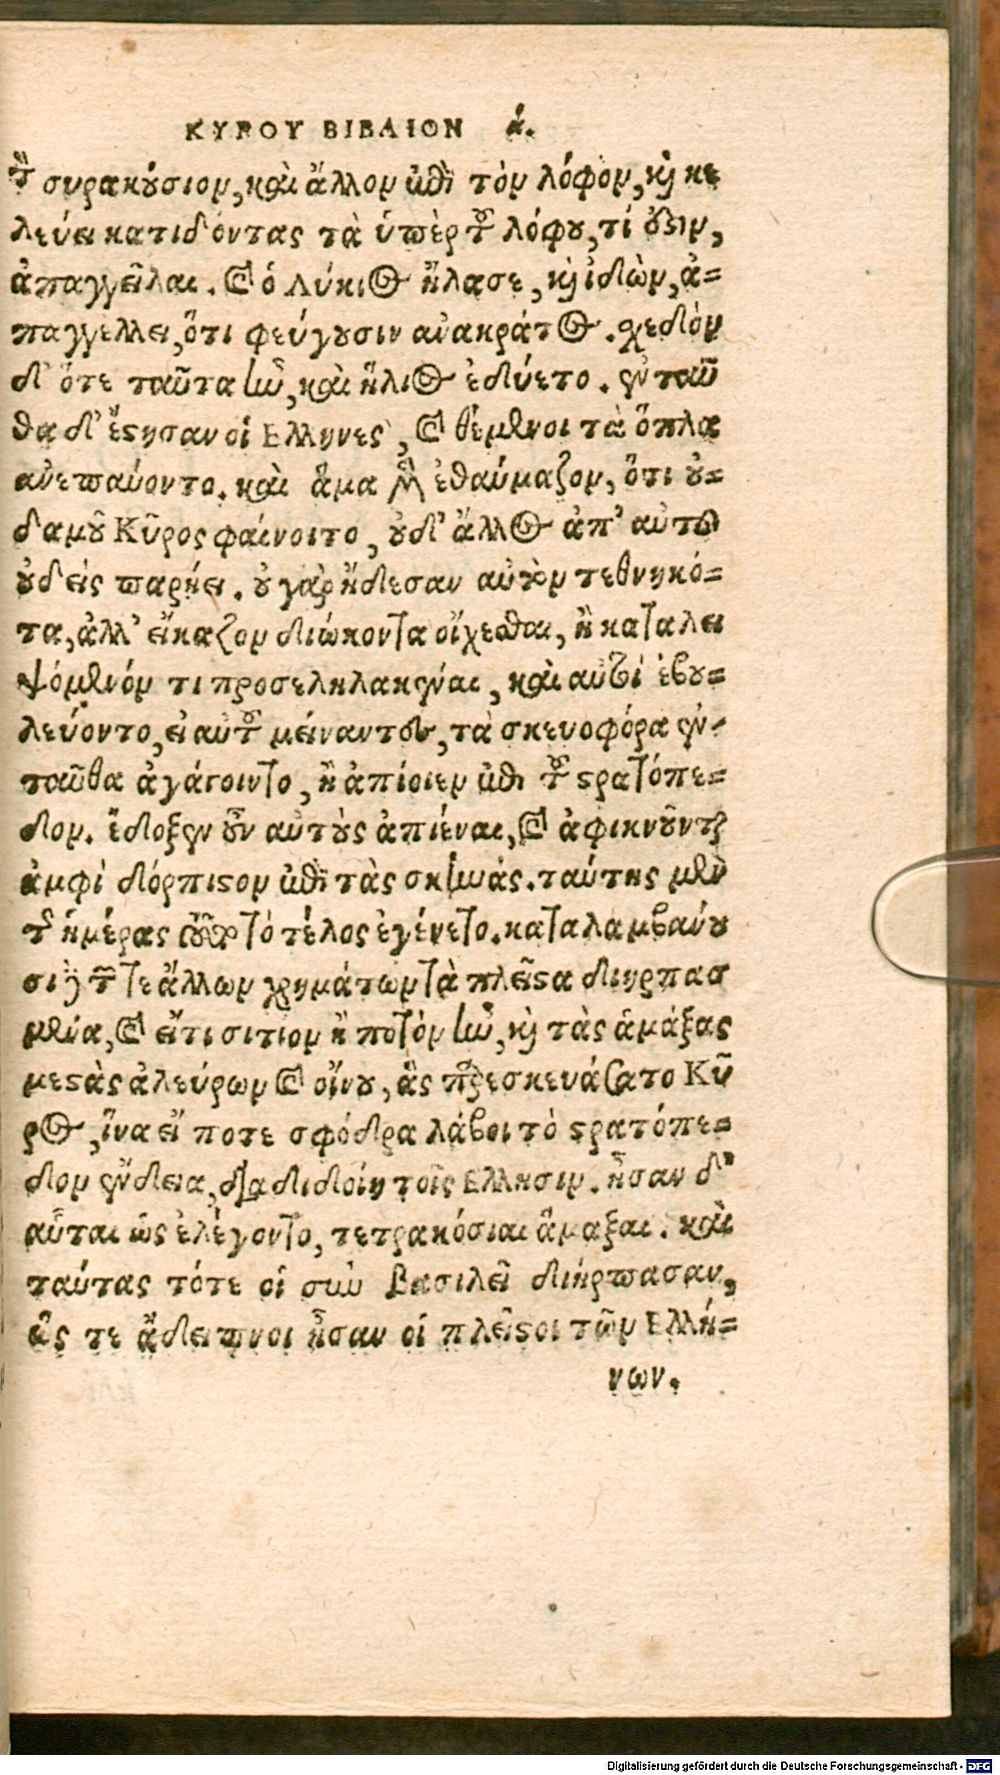 ΚΥΡΟΥ ΒΙΒΛΙΟΝ ά.
τὸν συρακούσιον, καὶ ἄλλον ἐπὶ τὸν λόφον, καὶ κε
λεύει κατιδόντας τὰ ὑπὲρ τοῦ λόφου, τί ὅζιν,
ἀπαγγεῖλαι. καὶ ὁ Λύκιος ἤλασε, καὶ ἰδὼν, ἀ=
παγγέλλει, ὅτι φεύγουσιν ανακράτος. σχεδὸν
δ' ὅτε ταῦτα ἦν, καὶ ἥλιος ἐδύετο. ἐνταῦ
θα δ' ἔστησαν οἱ Ελληνες, καὶ θέμενοι τὰ ὅπλα
ανεπαύοντο. καὶ ἅμα μὲν ἐθαύμαζον, ὅτι οὐ=
δαμοῦ Κῦρος φαίνοιτο, οὐδ' ἄλλος ἀπ' αὐτοῦ
οὐδεὶς παρῄει. οὐ γὰρ ᾔδεσαν αὐτὸν τεθνηκό=
τα, ἀλλ' εἴκαζον διώκοντα οἴχεσθαι, ἢ καταλει
ψόμενόν τι προσεληλακέναι, καὶ αὐτοί ἐβου=
λεύοντο, εἰ αὐτοῦ μείναντες, τὰ σκευοφόρα ἐν=
ταῦθα ἀγάγοιντο, ἢ ἀπίοιεν ἐπὶ τὸ στρατόπε=
δον. ἔδοξεν οὖν αὐτοὺς ἀπιέναι, καὶ ἀφικνοῦνται
ἀμφὶ δόρπιστον ἐπὶ τὰς σκηνάς. ταύτης μὲν
τῆς ἡμέρας οὕτω τὸ τέλος ἐγένετο. καταλαμβάνου
σι δὲ τῶν τε ἄλλων χρημάτων τὰ πλεῖστα διηρπασ
μένα, καὶ εἴτι σιτίον ἢ ποτὸν ἦν, καὶ τὰς ἁμάξας
μεστὰς ἀλεύρων καὶ οἴνου, ἃς παρεσκευάσατο Κῦ
ρος, ἵνα εἴ ποτε σφόδρα λάβοι τὸ στρατόπε=
δον ἔνδεια, διαδιδοίη τοῖς Ελλησιν. ἦσαν δ'
αὗται ὡς ἐλέγοντο, τετρακόσιαι ἅμαξαι. καὶ
ταύτας τότε οἱ σὺν βασιλεῖ διήρπασαν,
ὥς τε ἄδειπνοι ἦσαν οἱ πλεῖστοι τῶν Ελλή=
νων.
Digitalisierung gefördert durch die Deutsche Forschungsgemeinschaft - DFG